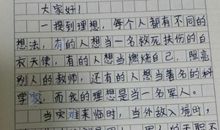 大家好!
一提到理想，每个人都有不同的
想法，有的人想当一名救死扶伤的白
衣天使，有的人想当燃烧自己，照亮
别人的教师，还有的人想当著名的科
学家，而我的理想是当一名军人。
当灾难来临时，当外敌入境时，
军人的